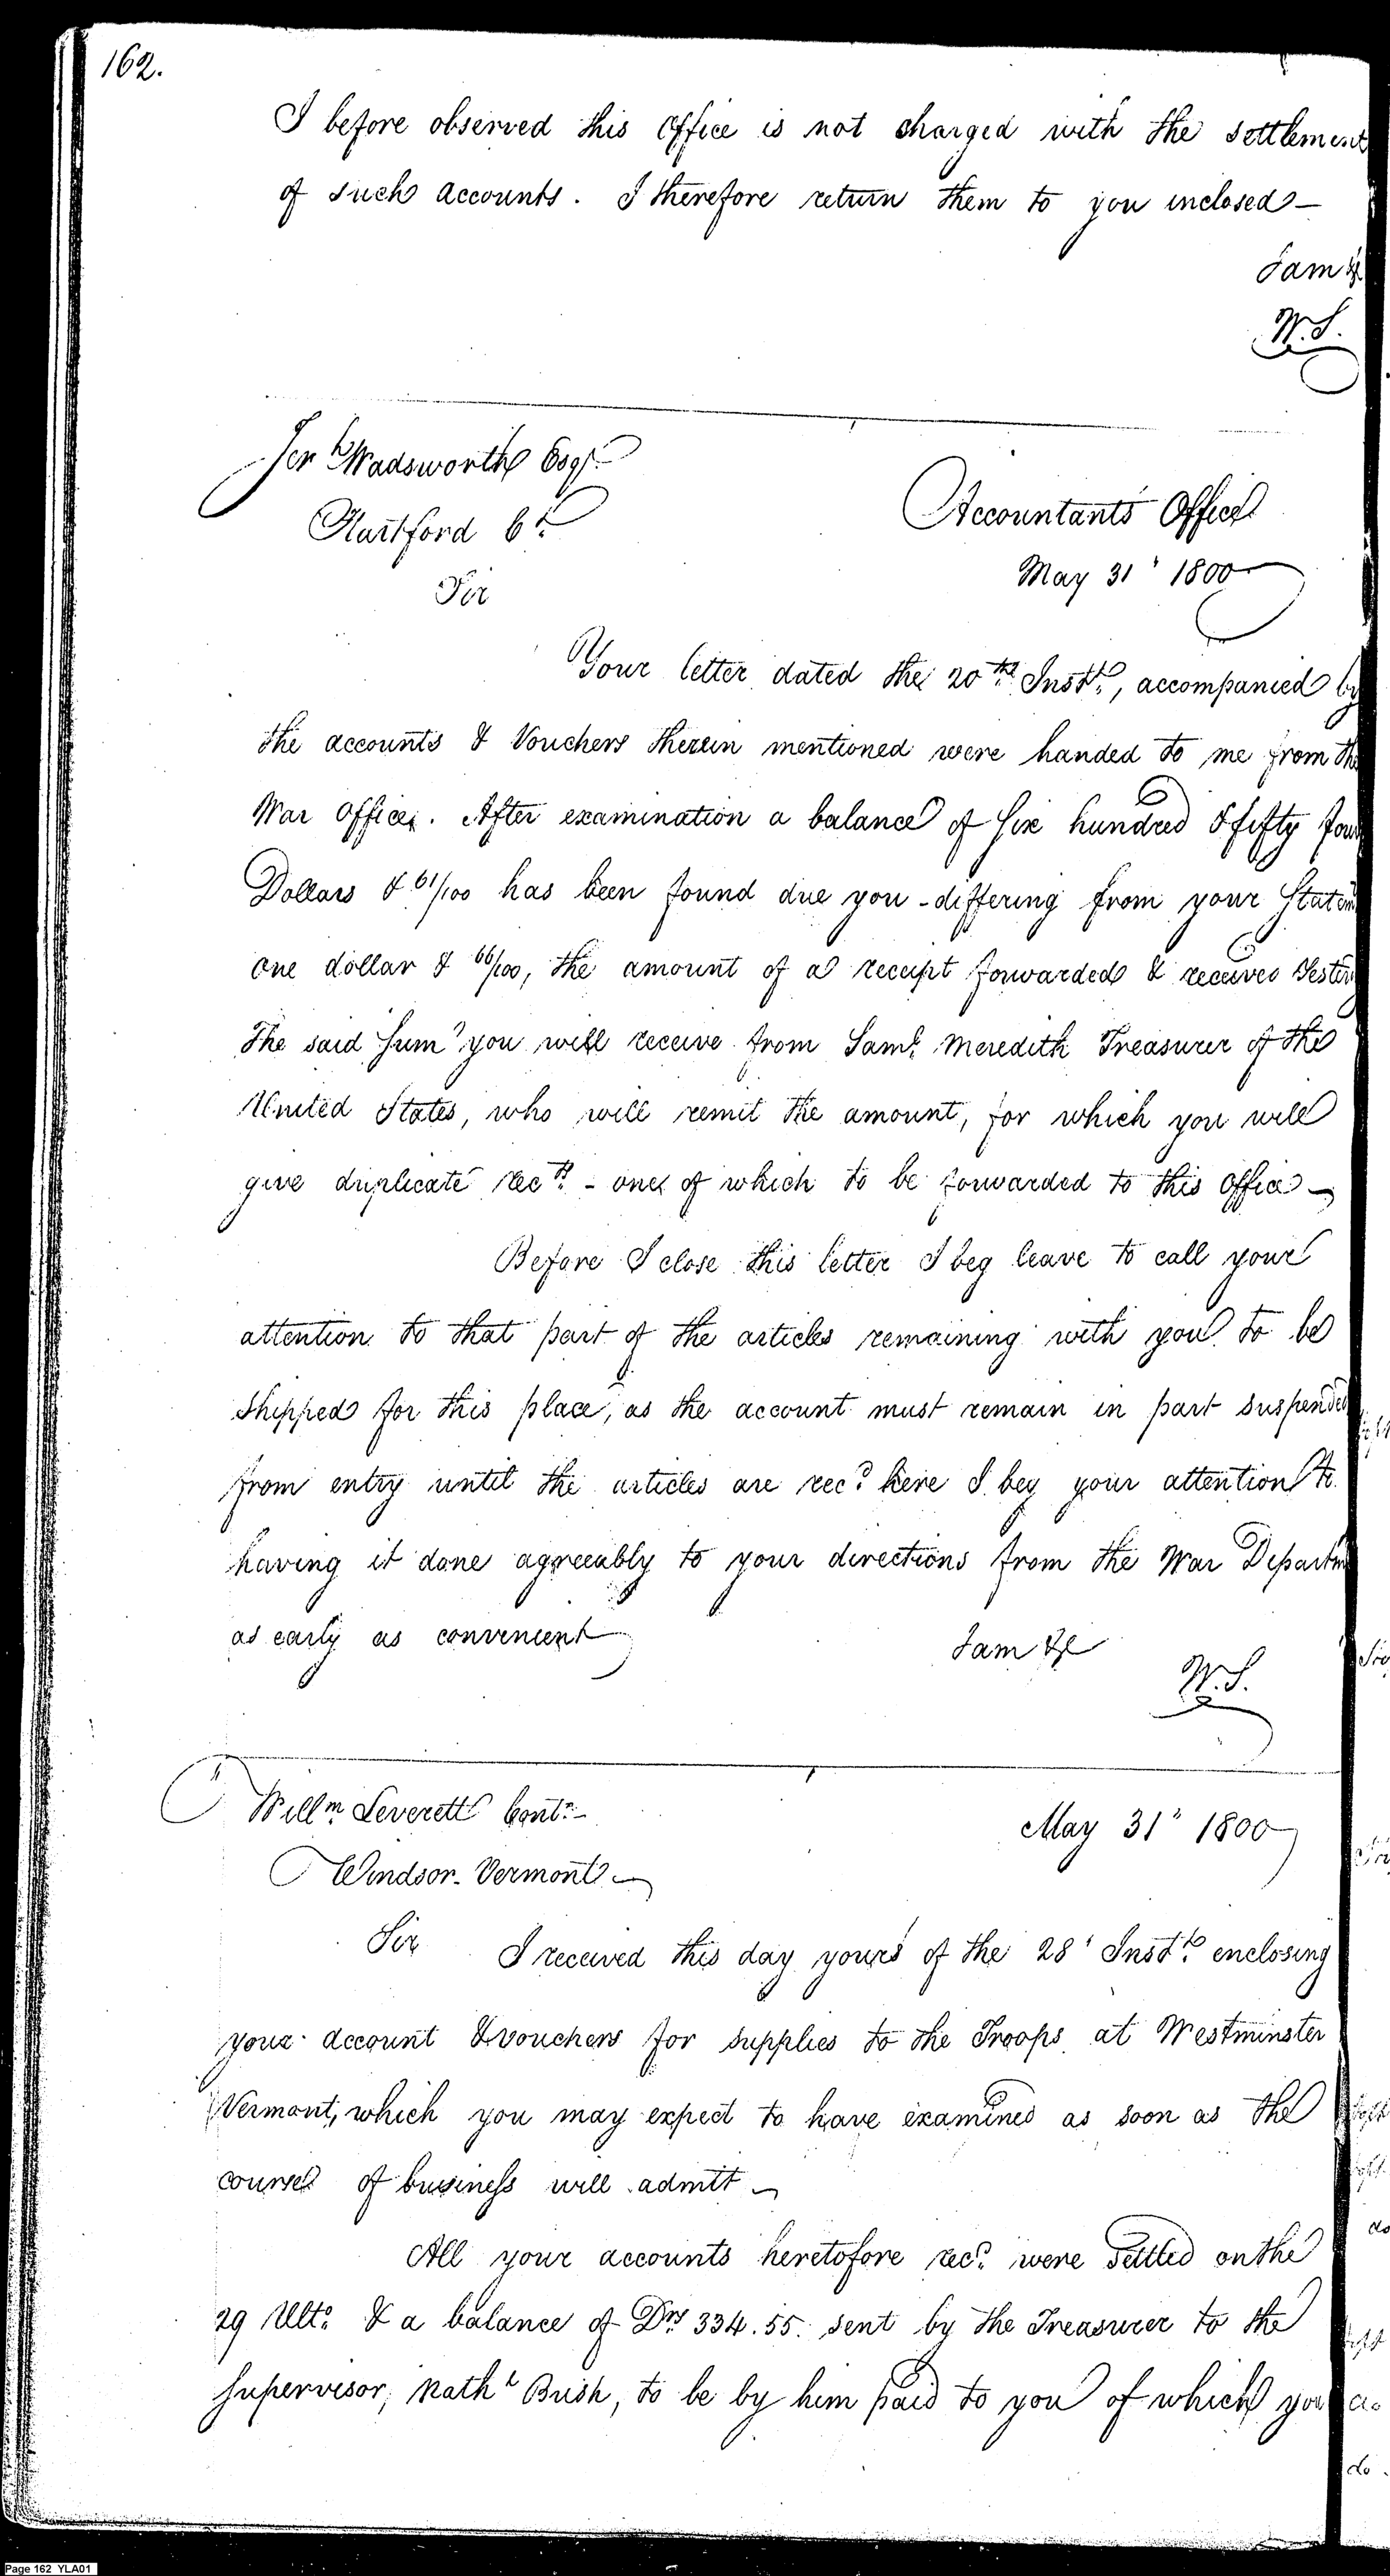 162.
I before observed this Office is not charged with the settlement
of such accounts. I therefore return them to you inclosed —
I am &c
W.S.
Jerh Wadsworth Esqr.
Hartford Ct.
Accountants Office
May 31' 1800
Sir
Your letter dated the 20th. Instt., accompanied by
the accounts & Vouchers therein mentioned were handed to me from the
War Office. After examination a balance of Six hundred & fifty four
Dollars & 61/100 has been found due you - differing from your Statem
one dollar & 66/100, the amount of a receipt forwarded & received Yester
The said Sum you will receive from Saml. Meredith Treasurer of the
United States, who will remit the amount, for which you will
give duplicate rec'ts. - one of which to be forwarded to this Office —
Before I close this letter I beg leave to call your
attention to that part of the articles remaining with you to be
Shipped for this place, as the account must remain in part suspended
from entry until the articles are recd. here I beg your attention to
having it done agreeably to your directions from the War Departm
as early as convenient
I am &c
W.S.
Willm. Leverett Contr. -
May 31" 1800
Windsor. Vermont. —
Sir I received this day yours of the 28' Instt. enclosing
your account & vouchers for supplies to the Troops at Westminster
Vermont, which you may expect to have examined as soon as the
course of business will admit —
All your accounts heretofore recd. were settled on the
29 Ulto. & a balance of Drs 334.55. sent by the Treasurer to the
Supervisor, Nathl Brush, to be by him paid to you of which you
Page 162 YLA01